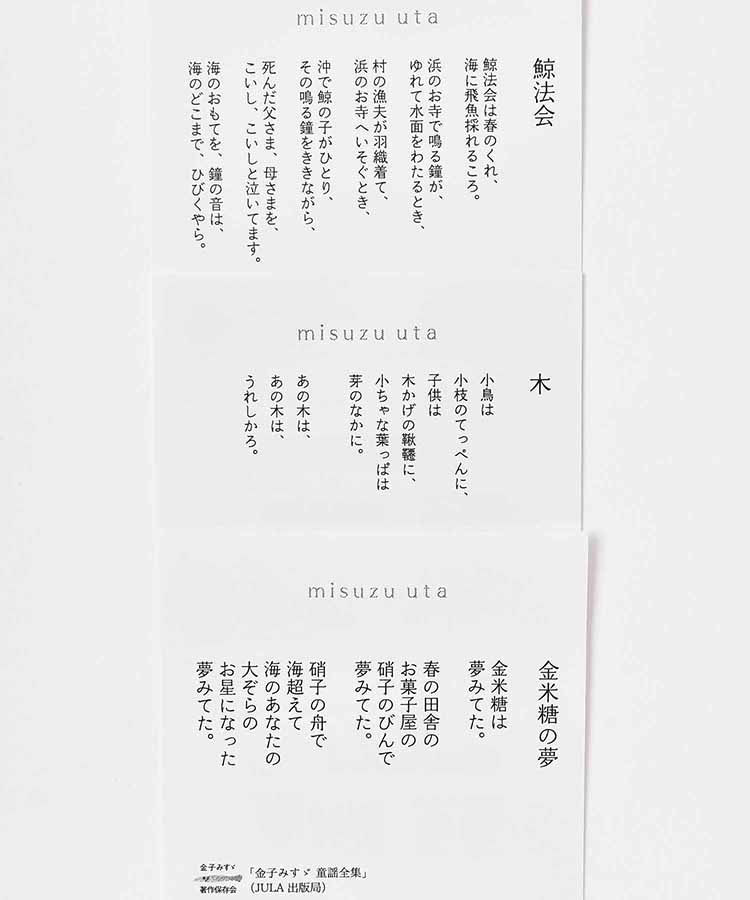 misuzu uta
鯨法会
鯨法会は春のくれ、
海に飛魚採れるころ。
浜のお寺で鳴る鐘が、
ゆれて水面をわたるとき、
村の漁夫が羽織着て、
浜のお寺へいそぐとき、
沖で鯨の子がひとり、
その鳴る鐘をききながら、
死んだ父さま、母さまを、
こいし、こいしと泣いてます。
海のおもてを、鐘の音は、
海のどこまで、ひびくやら。
misuzu uta
木
小鳥は
小枝のてっぺんに、
子供は
木かげの鞦韆に、
小ちゃな葉っぱは
芽のなかに。
あの木は、
あの木は、
うれしかろ。
misuzu uta
金米糖の夢
金米糖は
夢みてた。
春の田舎の
お菓子屋の
硝子のびんで
夢みてた。
硝子の舟で
海超えて
海のあなたの
大ぞらの
お星になった
夢みてた。
金子みすゞ
著作保存会
「金子みすゞ 童謡全集」
（JULA 出版局）